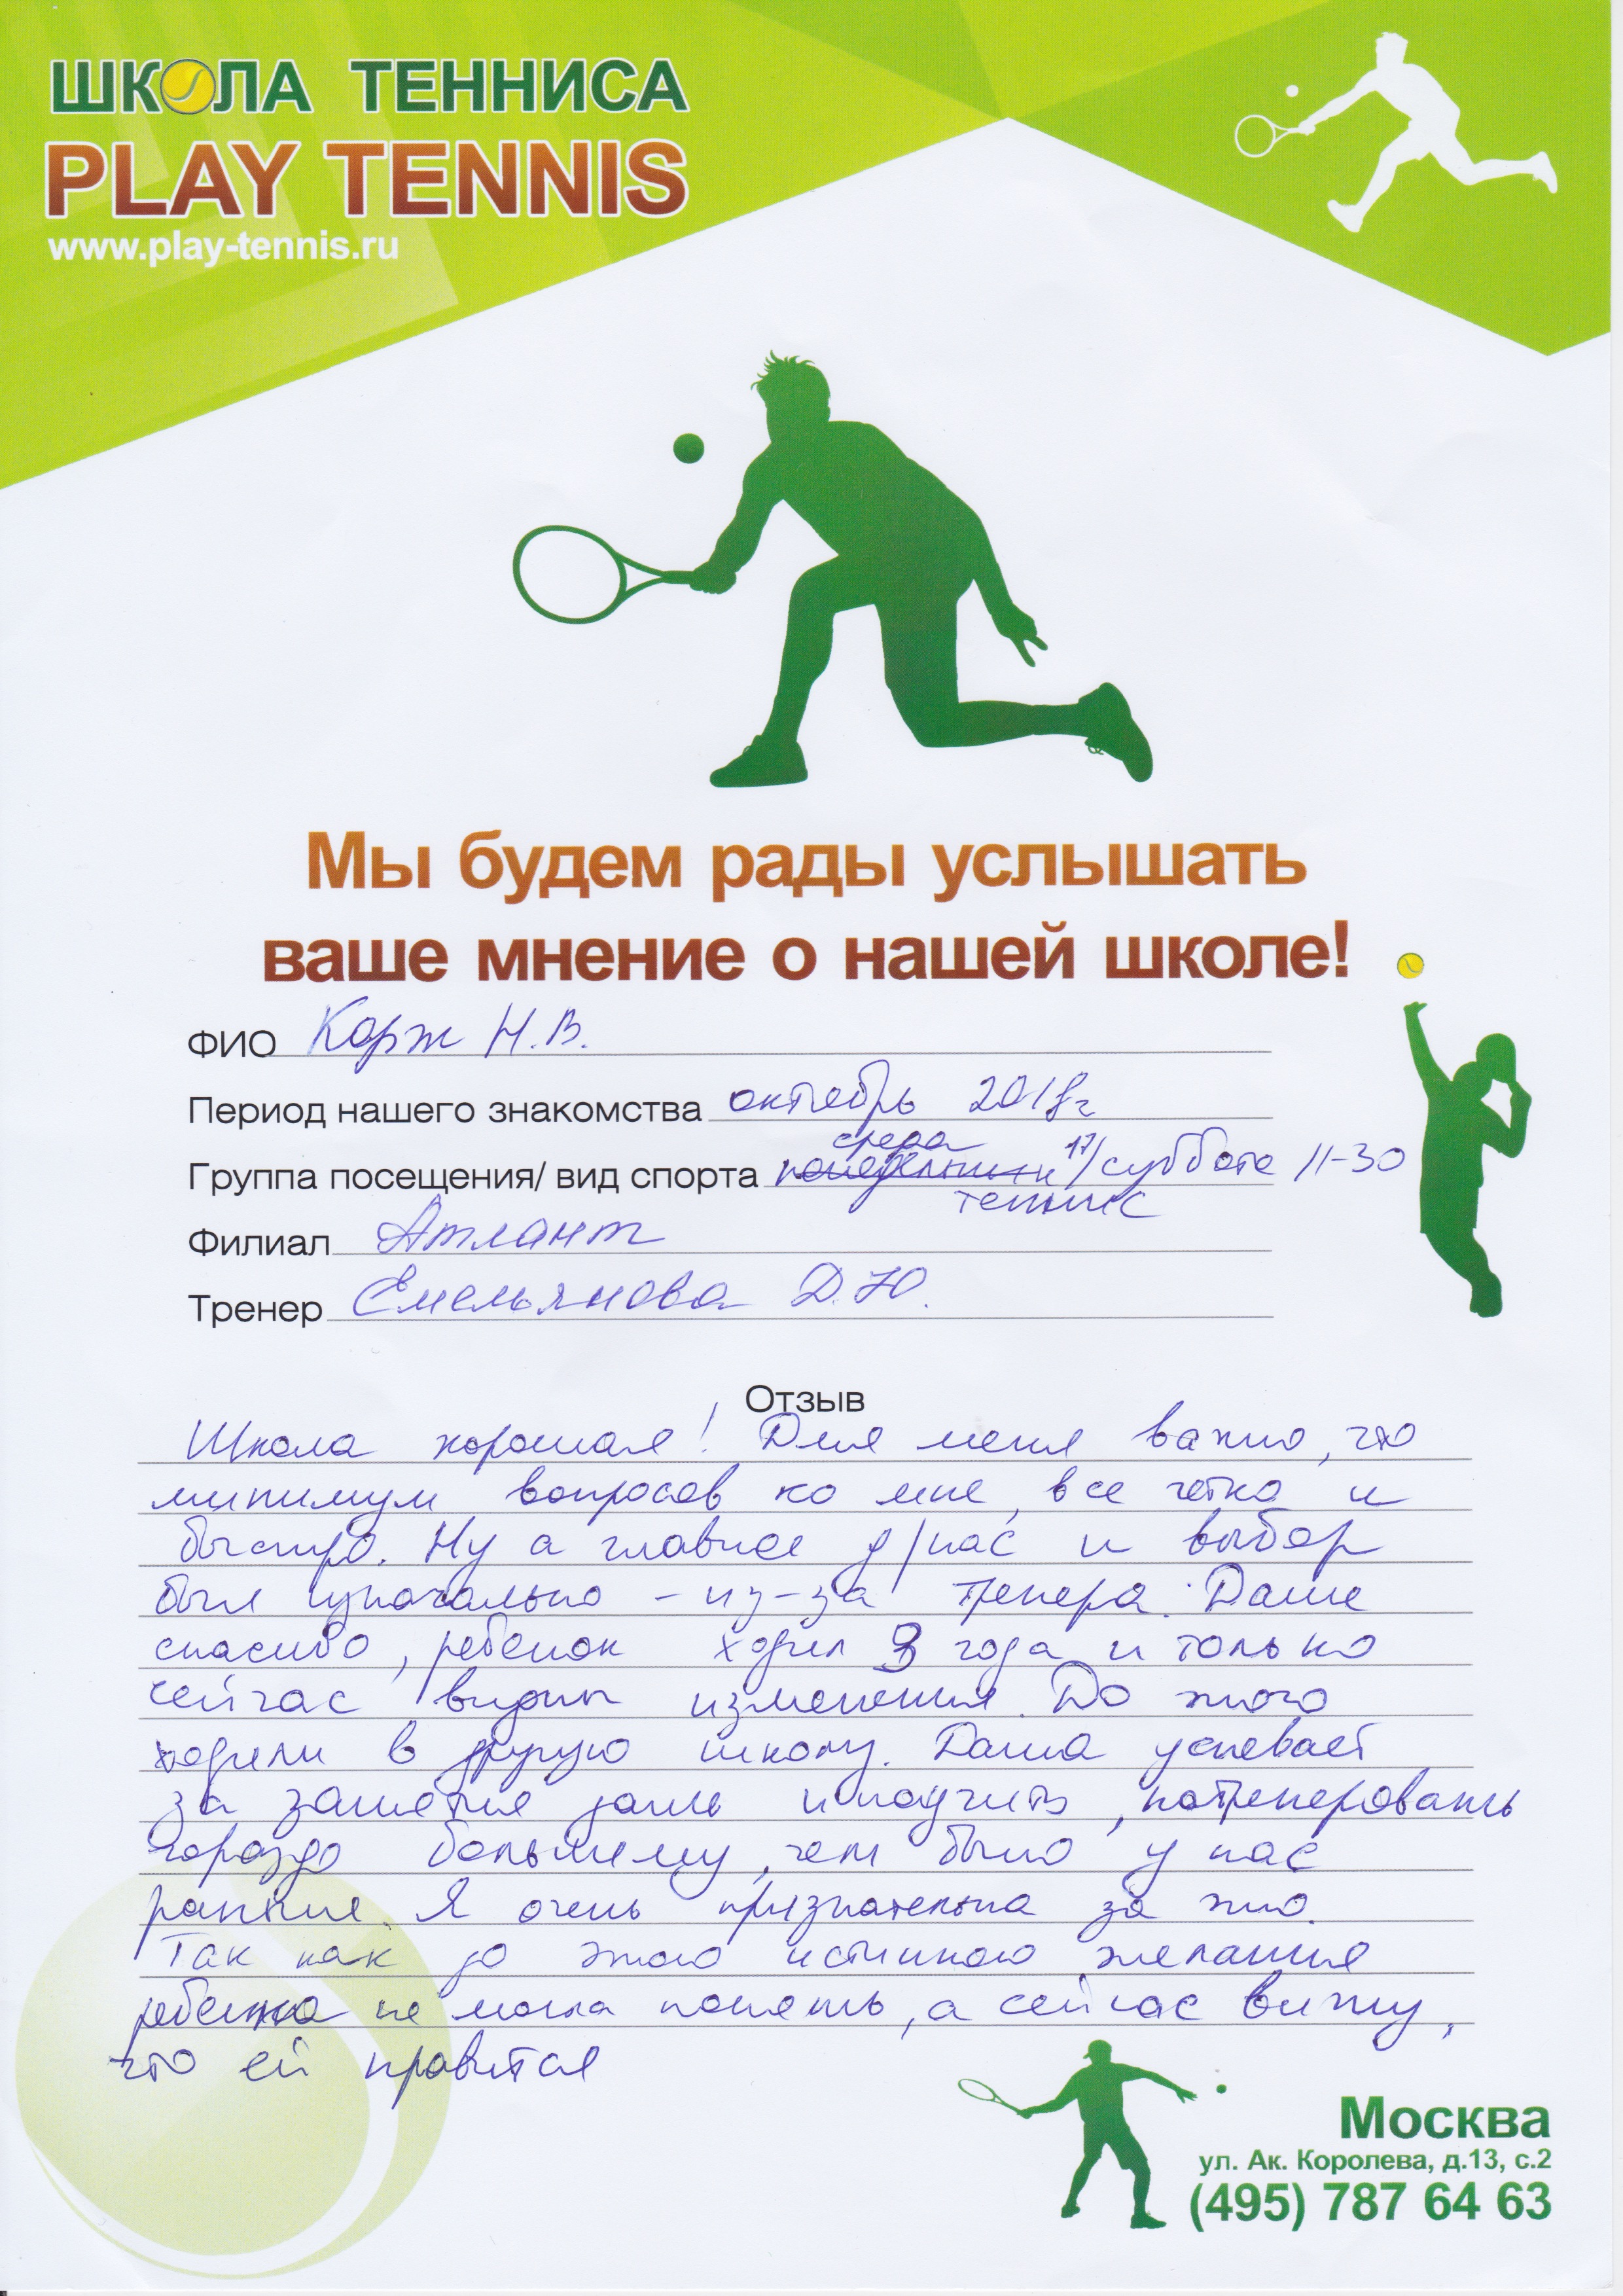 ШКОЛА ТЕННИСА
PLAY TENNIS
www.play-tennis.ru
Мы будем рады услышать
ваше мнение о нашей школе!
ФИО Корж Н.В.
Период нашего знакомства октябрь 2018г
среда
Группа посещения/ вид спорта понедельник 17/суббота 11-30
теннис
Филиал Атлант
Тренер Емельянова Д.Ю.
Отзыв
Школа хорошая! Для меня важно, что
минимум вопросов ко мне, все четко и
быстро. Ну а главное д/нас и выбор
был изначально - из-за тренера. Даше
спасибо, ребенок ходил 3 года и только
сейчас видим изменения. До этого
ходили в другую школу. Даша успевает
за занятие дать и научить, потренировать
гораздо большему, чем было у нас
раньше. Я очень признательна за это.
Так как до этого истинного желания
ребенка не могла понять, а сейчас вижу,
что ей нравится
Москва
ул. Ак. Королева, д.13, с.2
(495) 787 64 63